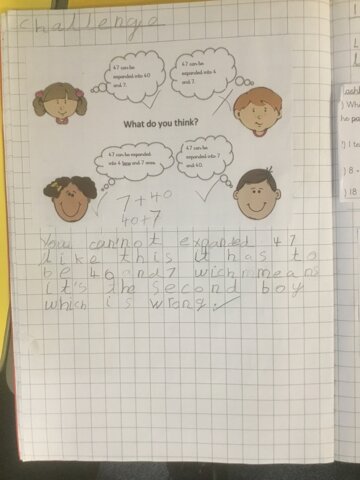 challenge
47 can be
expanded into 40
and 7.
47 can be
expanded into 4
and 7.
What do you think?
47 can be expanded
into 4 tens and 7 ones.
47 can be
expanded into 7
and 40.
7+40
40+7
You cannot expanded 47
like this it has to
be 40 and 7 wich means
it's the second boy
which is wrong.